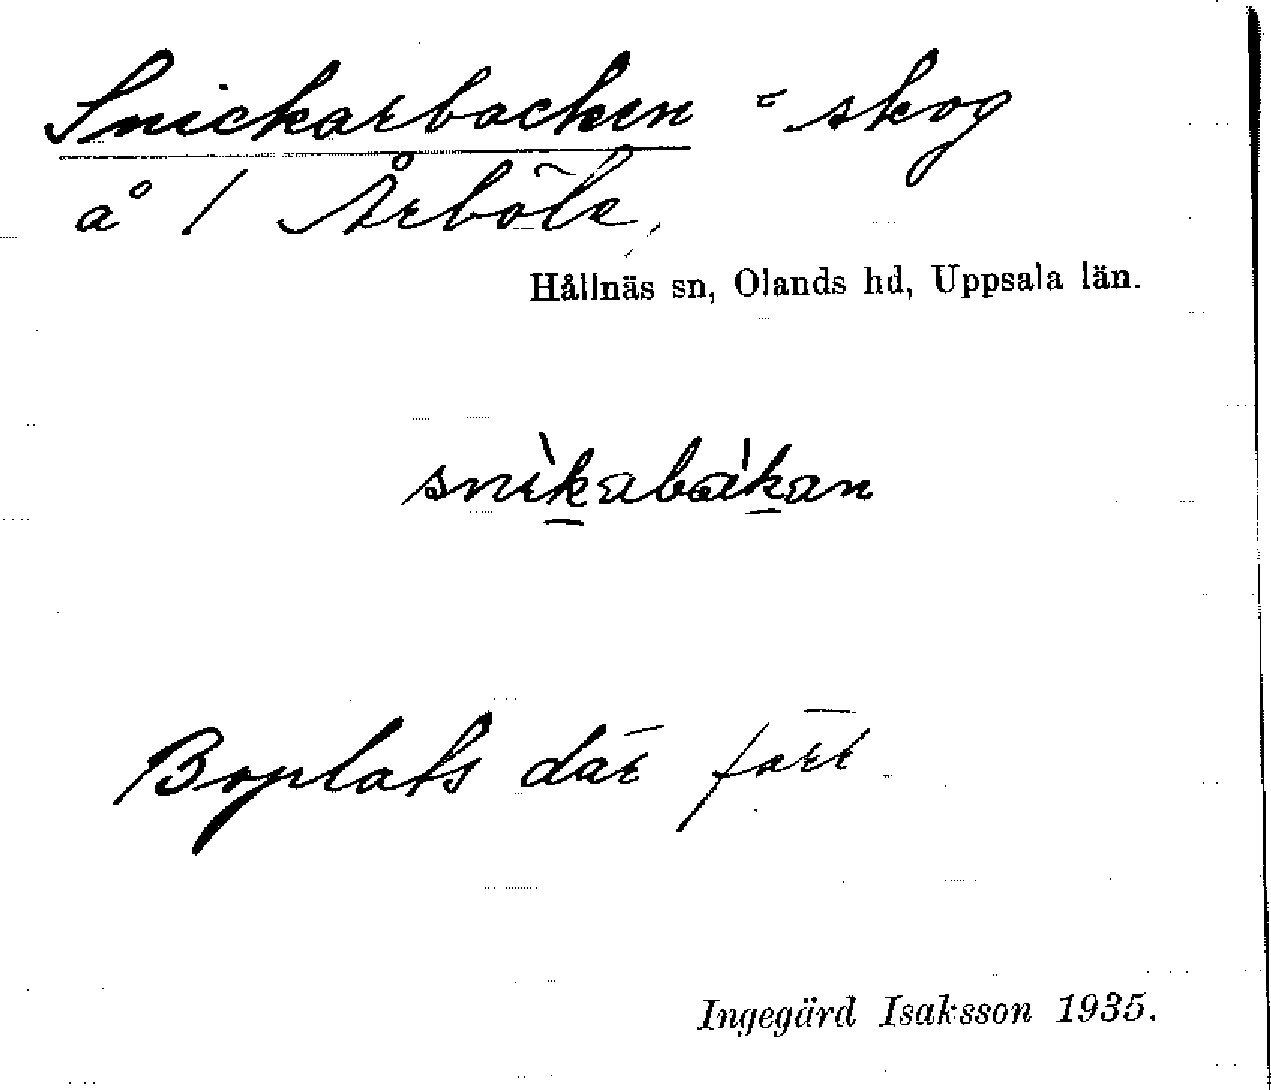 Snickarbacken = skog
å / Årböle,
Hållnäs sn, Olands hd, Uppsala län.
snìkabàkan
Boplats där förr
Ingegärd Isaksson 1935.